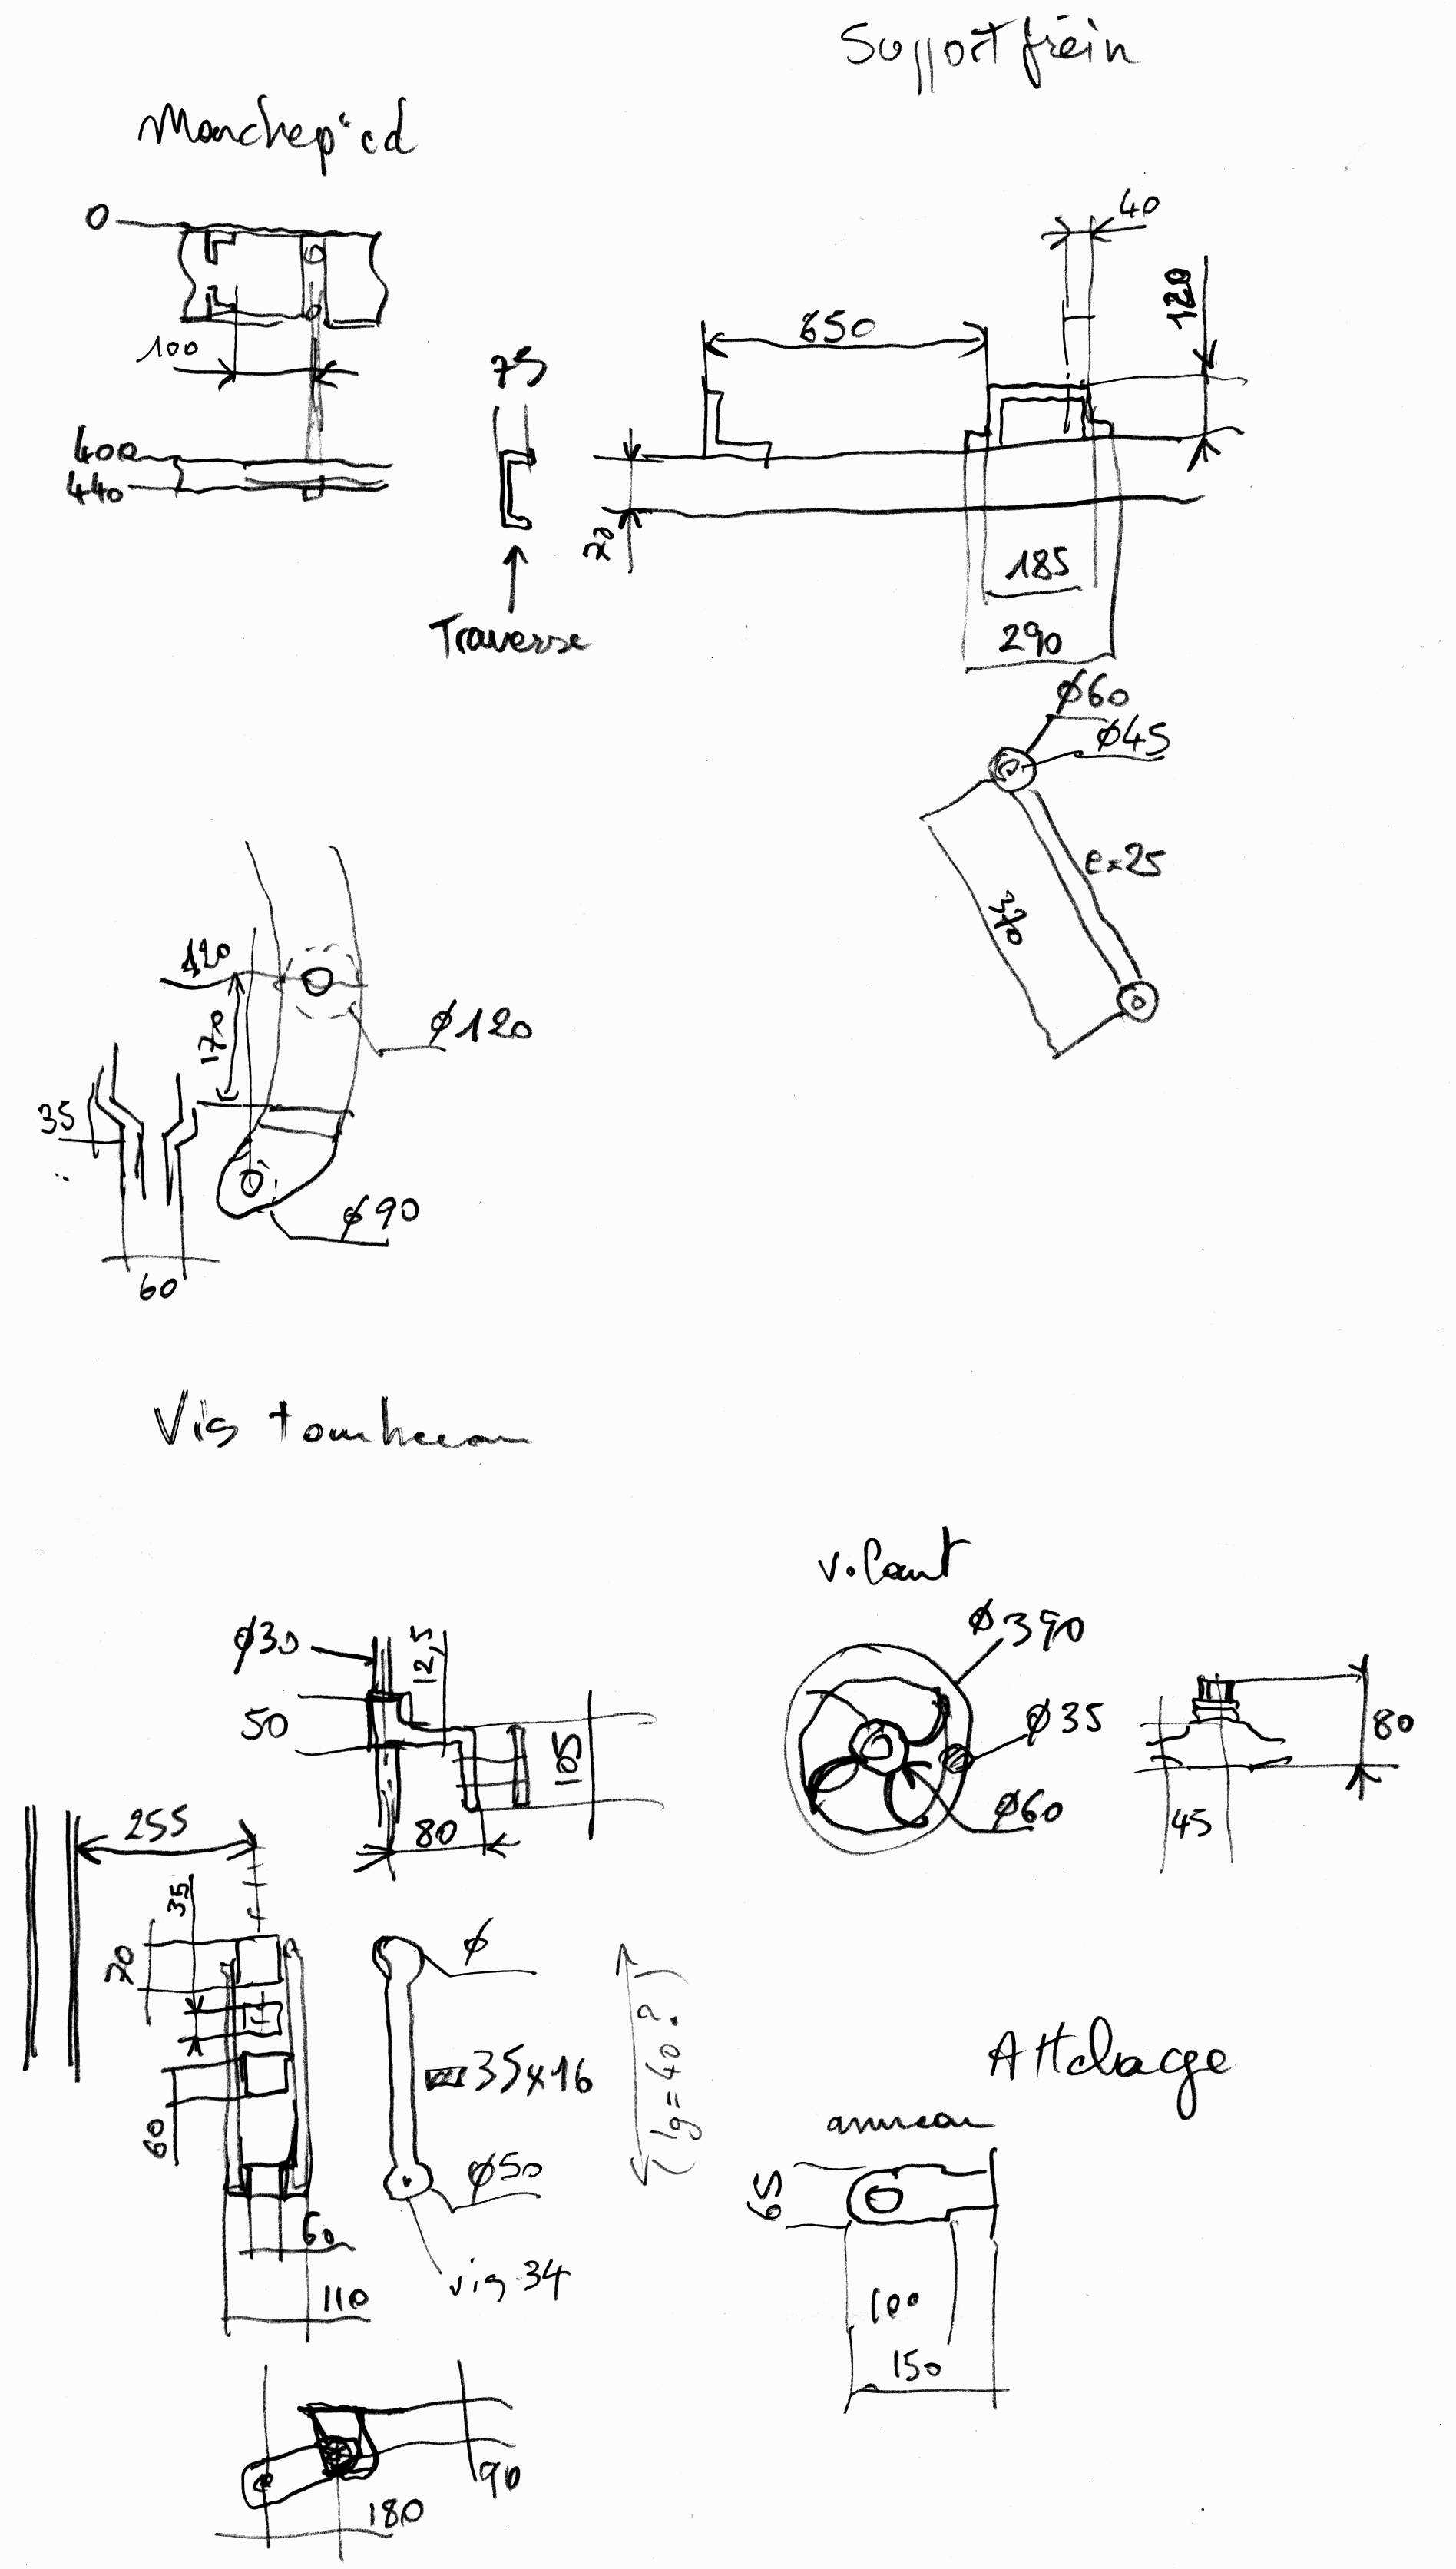 Support frein
Marchepied
0
100
400
440
75
Traverse
650
40
120
70
185
290
ø60
ø45
e=25
370
120
170
ø120
35
60
ø90
Vis tombereau
ø30
12,5
50
105
80
255
35
70
60
60
110
ø
35x16
ø50
vis 34
(lg=40?)
180
90
volant
ø390
ø35
ø60
80
45
Attelage
anneau
65
100
150